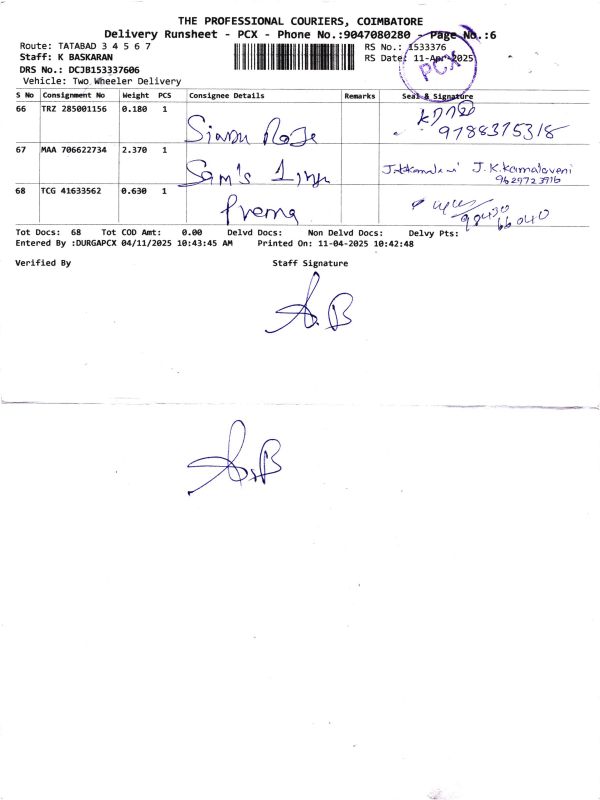 THE PROFESSIONAL COURIERS, COIMBATORE
Delivery Runsheet - PCX - Phone No.:9047080280 - Page No.:6
Route: TATABAD 3 4 5 6 7
RS No.: 1533376
Staff: K BASKARAN
RS Date: 11-Apr-2025
PCX
DRS No.: DCJB153337606
Vehicle: Two Wheeler Delivery
S No Consignment No Weight PCS Consignee Details Remarks Seal & Signature
66 TRZ 285001156 0.180 1
9788375318
67 MAA 706622734 2.370 1 Sam's J.K.Kamaloveni
9629723916
68 TCG 41633562 0.630 1 Prema
98430
66040
Tot Docs: 68 Tot COD Amt: 0.00 Delvd Docs: Non Delvd Docs: Delvy Pts:
Entered By :DURGAPCX 04/11/2025 10:43:45 AM Printed On: 11-04-2025 10:42:48
Verified By Staff Signature
A.B
A.B